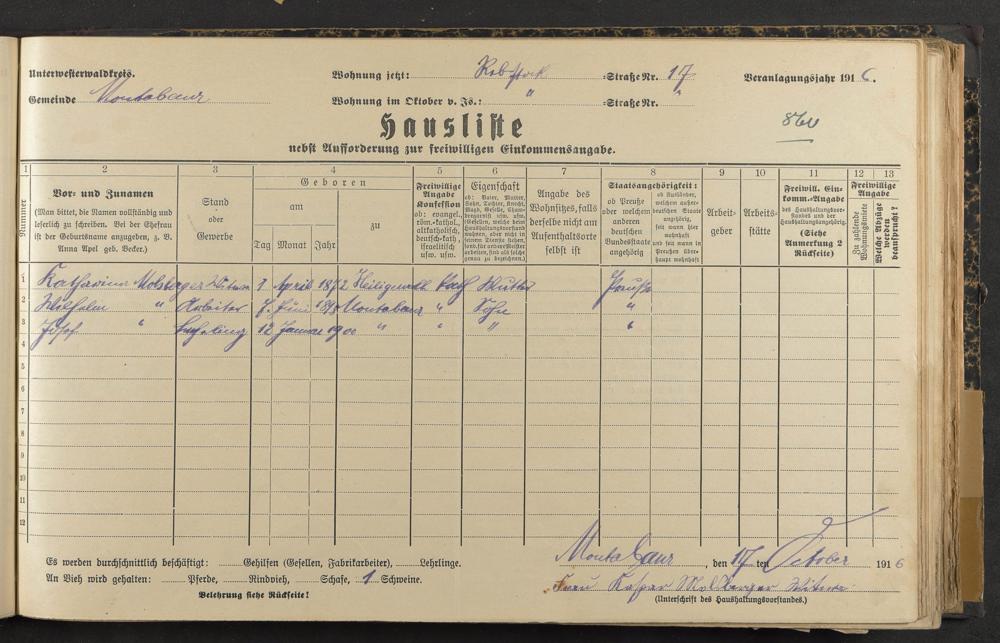 Unterwesterwaldkreis.
Wohnung jetzt: Rebstock -Straße Nr. 17
Veranlagungsjahr 1916.
Gemeinde Montabaur
Wohnung im Oktober v. Js.: " -Straße Nr. "
860
Hausliste
nebst Aufforderung zur freiwilligen Einkommensangabe.
1 2 3 4 5 6 7 8 9 10 11 12 13
Nummer
Vor- und Zunamen
(Man bittet, die Namen vollständig und
leserlich zu schreiben. Bei der Ehefrau
ist der Geburtsname anzugeben, z. B.
Anna Apel geb. Becker.)
Stand
oder
Gewerbe
Geboren
am
zu
Tag Monat Jahr
Freiwillige
Angabe
Konfession
ob: evangel.,
röm.-kathol.,
altkatholisch,
deutsch-kath.,
israelitisch
usw. usw.
Eigenschaft
ob: Vater, Mutter,
Sohn, Tochter, Knecht,
Magd, Geselle,
Angabe des
Wohnsitzes, falls
derselbe nicht am
Aufenthaltsorte
selbst ist
Staatsangehörigkeit:
ob Preuße
oder welchem
anderen
deutschen
Bundesstaate
angehörig
ob Ausländer,
welchem außer-
deutschen Staate
angehörig,
seit wann hier
wohnhaft
und seit wann in
Preußen über-
haupt wohnhaft
Arbeit-
geber
Arbeits-
stätte
Freiwill. Ein-
komm.-Angabe
des Haushaltungsvor-
standes und der
Haushaltungsangehörig.
(Siehe
Anmerkung 2
Rückseite)
Freiwillige
Angabe
Zu zahlende
Wohnungsmiete
Welche Abzüge
werden
beansprucht?
1 Katharina Molsberger Witwe 7. April 1872 Kath Mutter Preuße
2 Wilhelm " Arbeiter 7. Juni Montabaur " Sohn "
3 Josef " Lehrling 12 Januar 1900 " " " "
4
5
6
7
8
9
10
11
12
Montabaur, den 17 ten October 1916
Es werden durchschnittlich beschäftigt: Gehilfen (Gesellen, Fabrikarbeiter), Lehrlinge.
An Vieh wird gehalten: Pferde, Rindvieh, Schafe, 1 Schweine.
Frau Kaspar Molsberger Witwe
Belehrung siehe Rückseite!
(Unterschrift des Haushaltungsvorstandes.)